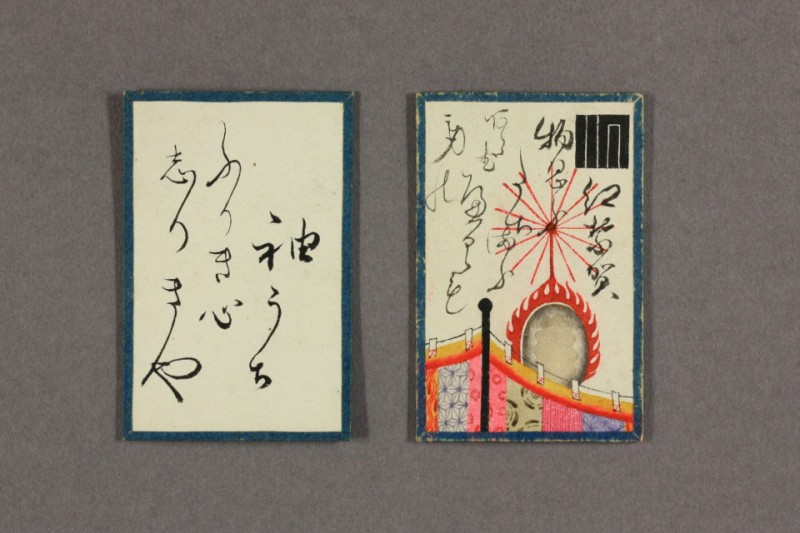 紅葉賀
物思ふに
たちまふ
へくも
あらぬ
身の
袖うち
ふりき心
志りきや